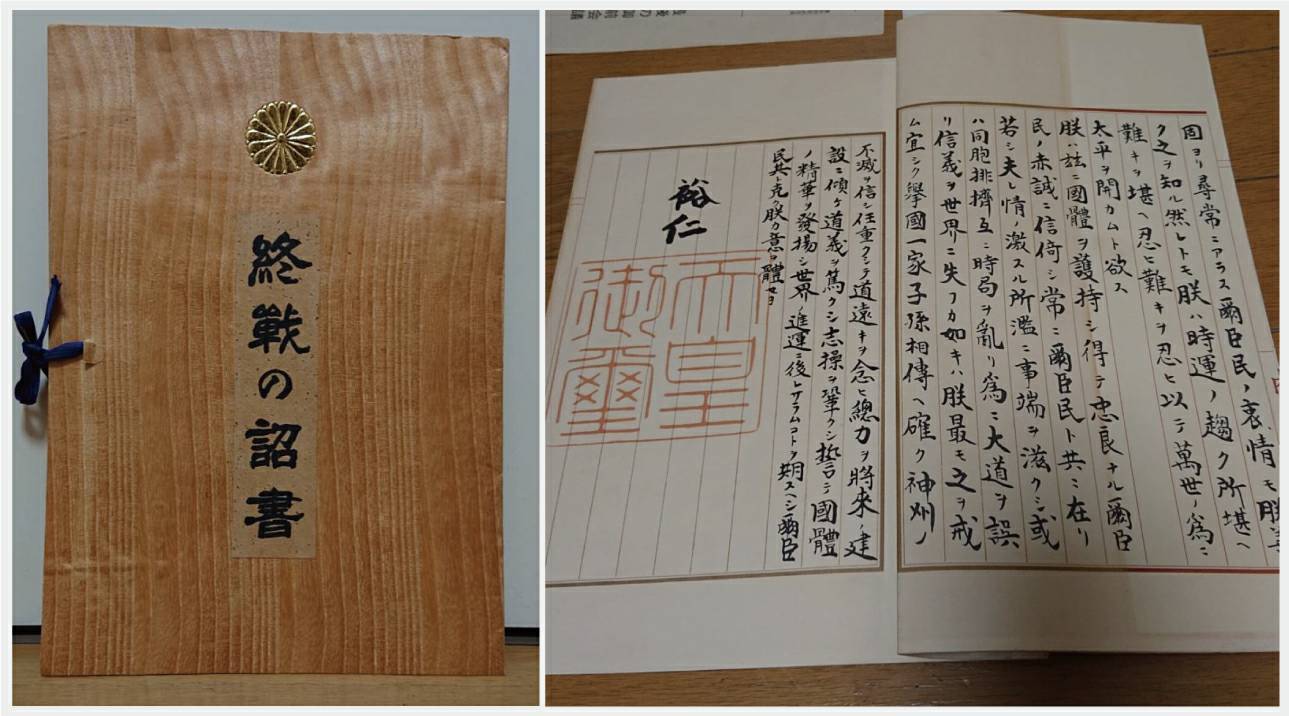 終戰の詔書
固ヨリ尋常ニアラス爾臣民ノ衷情モ朕善
ク之ヲ知ル然レトモ朕ハ時運ノ趨ク所堪ヘ
難キヲ堪ヘ忍ヒ難キヲ忍ヒ以テ萬世ノ爲ニ
太平ヲ開カムト欲ス
朕ハ玆ニ國體ヲ護持シ得テ忠良ナル爾臣
民ノ赤誠ニ信倚シ常ニ爾臣民ト共ニ在リ
若シ夫レ情ノ激スル所濫ニ事端ヲ滋クシ或
ハ同胞排擠互ニ時局ヲ亂リ爲ニ大道ヲ誤
リ信義ヲ世界ニ失フカ如キハ朕最モ之ヲ戒
ム宜シク擧國一家子孫相傳ヘ確ク神州ノ
不滅ヲ信シ任重クシテ道遠キヲ念ヒ總力ヲ將來ノ建
設ニ傾ケ道義ヲ篤クシ志操ヲ鞏クシ誓テ國體
ノ精華ヲ發揚シ世界ノ進運ニ後レサラムコトヲ期スヘシ爾臣
民其レ克ク朕カ意ヲ體セヨ
裕仁
天皇
御璽